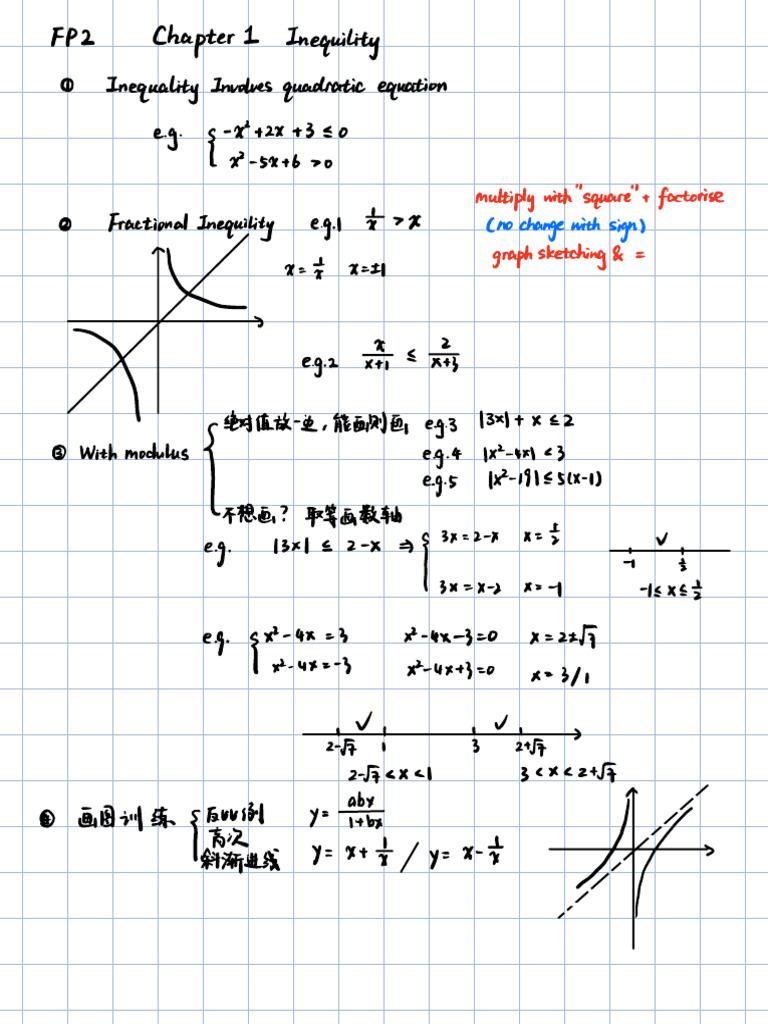 FP2 Chapter 1 Inequility
① Inequality Involves quadratic equation
e.g. { -x²+2x+3 ≤ 0
x²-5x+6 >0
multiply with "square" + factorise
(no change with sign)
graph sketching & =
② Fractional Inequility e.g.1 1/x > x
x = 1/x x=±1
e.g.2 x/(x+1) ≤ 2/(x+3)
③ With modulus
绝对值放一边，能画则画 e.g.3 |3x| + x ≤ 2
e.g.4 |x²-4x| < 3
e.g.5 |x²-19| ≤ 5(x-1)
不想画？ 取等画数轴
e.g. |3x| ≤ 2-x ⇒ { 3x=2-x x=1/2
3x=x-2 x=-1
-1 1/2
-1≤x≤1/2
e.g. { x²-4x=3 x²-4x-3=0 x=2±√7
x²-4x=-3 x²-4x+3=0 x=3/1
2-√7 1 3 2+√7
2-√7<x<1 3<x<2+√7
④ 画图训练 { 反比例 y= abx/(1+bx)
高次
斜渐进线 y= x+1/x / y= x-1/x